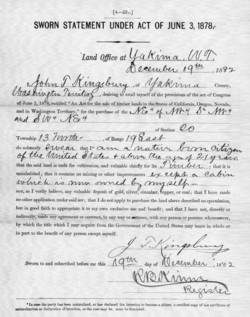 [4—358.]
SWORN STATEMENT UNDER ACT OF JUNE 3, 1878.
Land Office at Yakima, W.T.
December 19th, 1882
I, John T. Kingsbury of Yakima County,
Washington Territory, desiring to avail myself of the provisions of the act of Congress
of June 3, 1878, entitled "An Act for the sale of timber lands in the States of California, Oregon, Nevada,
and in Washington Territory," for the purchase of the
of Section 20
Township 13 North of Range 19 East do
solemnly swear I am a native born citizen
of the United States & above the age of 21 years
that the said land is unfit for cultivation, and valuable chiefly for its timber; that it is
uninhabited; that it contains no mining or other improvements except a cabin
which is owned by myself
nor, as I verily believe, any valuable deposit of gold, silver, cinnabar, copper, or coal; that I have made
no other application under said act; that I do not apply to purchase the land above described on speculation,
but in good faith to appropriate it to my own exclusive use and benefit; and that I have not, directly or
indirectly, made any agreement or contract, in any way or manner, with any person or persons whomsoever,
by which the title which I may acquire from the Government of the United States may inure in whole or in
part to the benefit of any person except myself.
J. T. Kingsbury
Sworn to and subscribed before me this 19th day of December, 1882
R. B. Kinne
Register